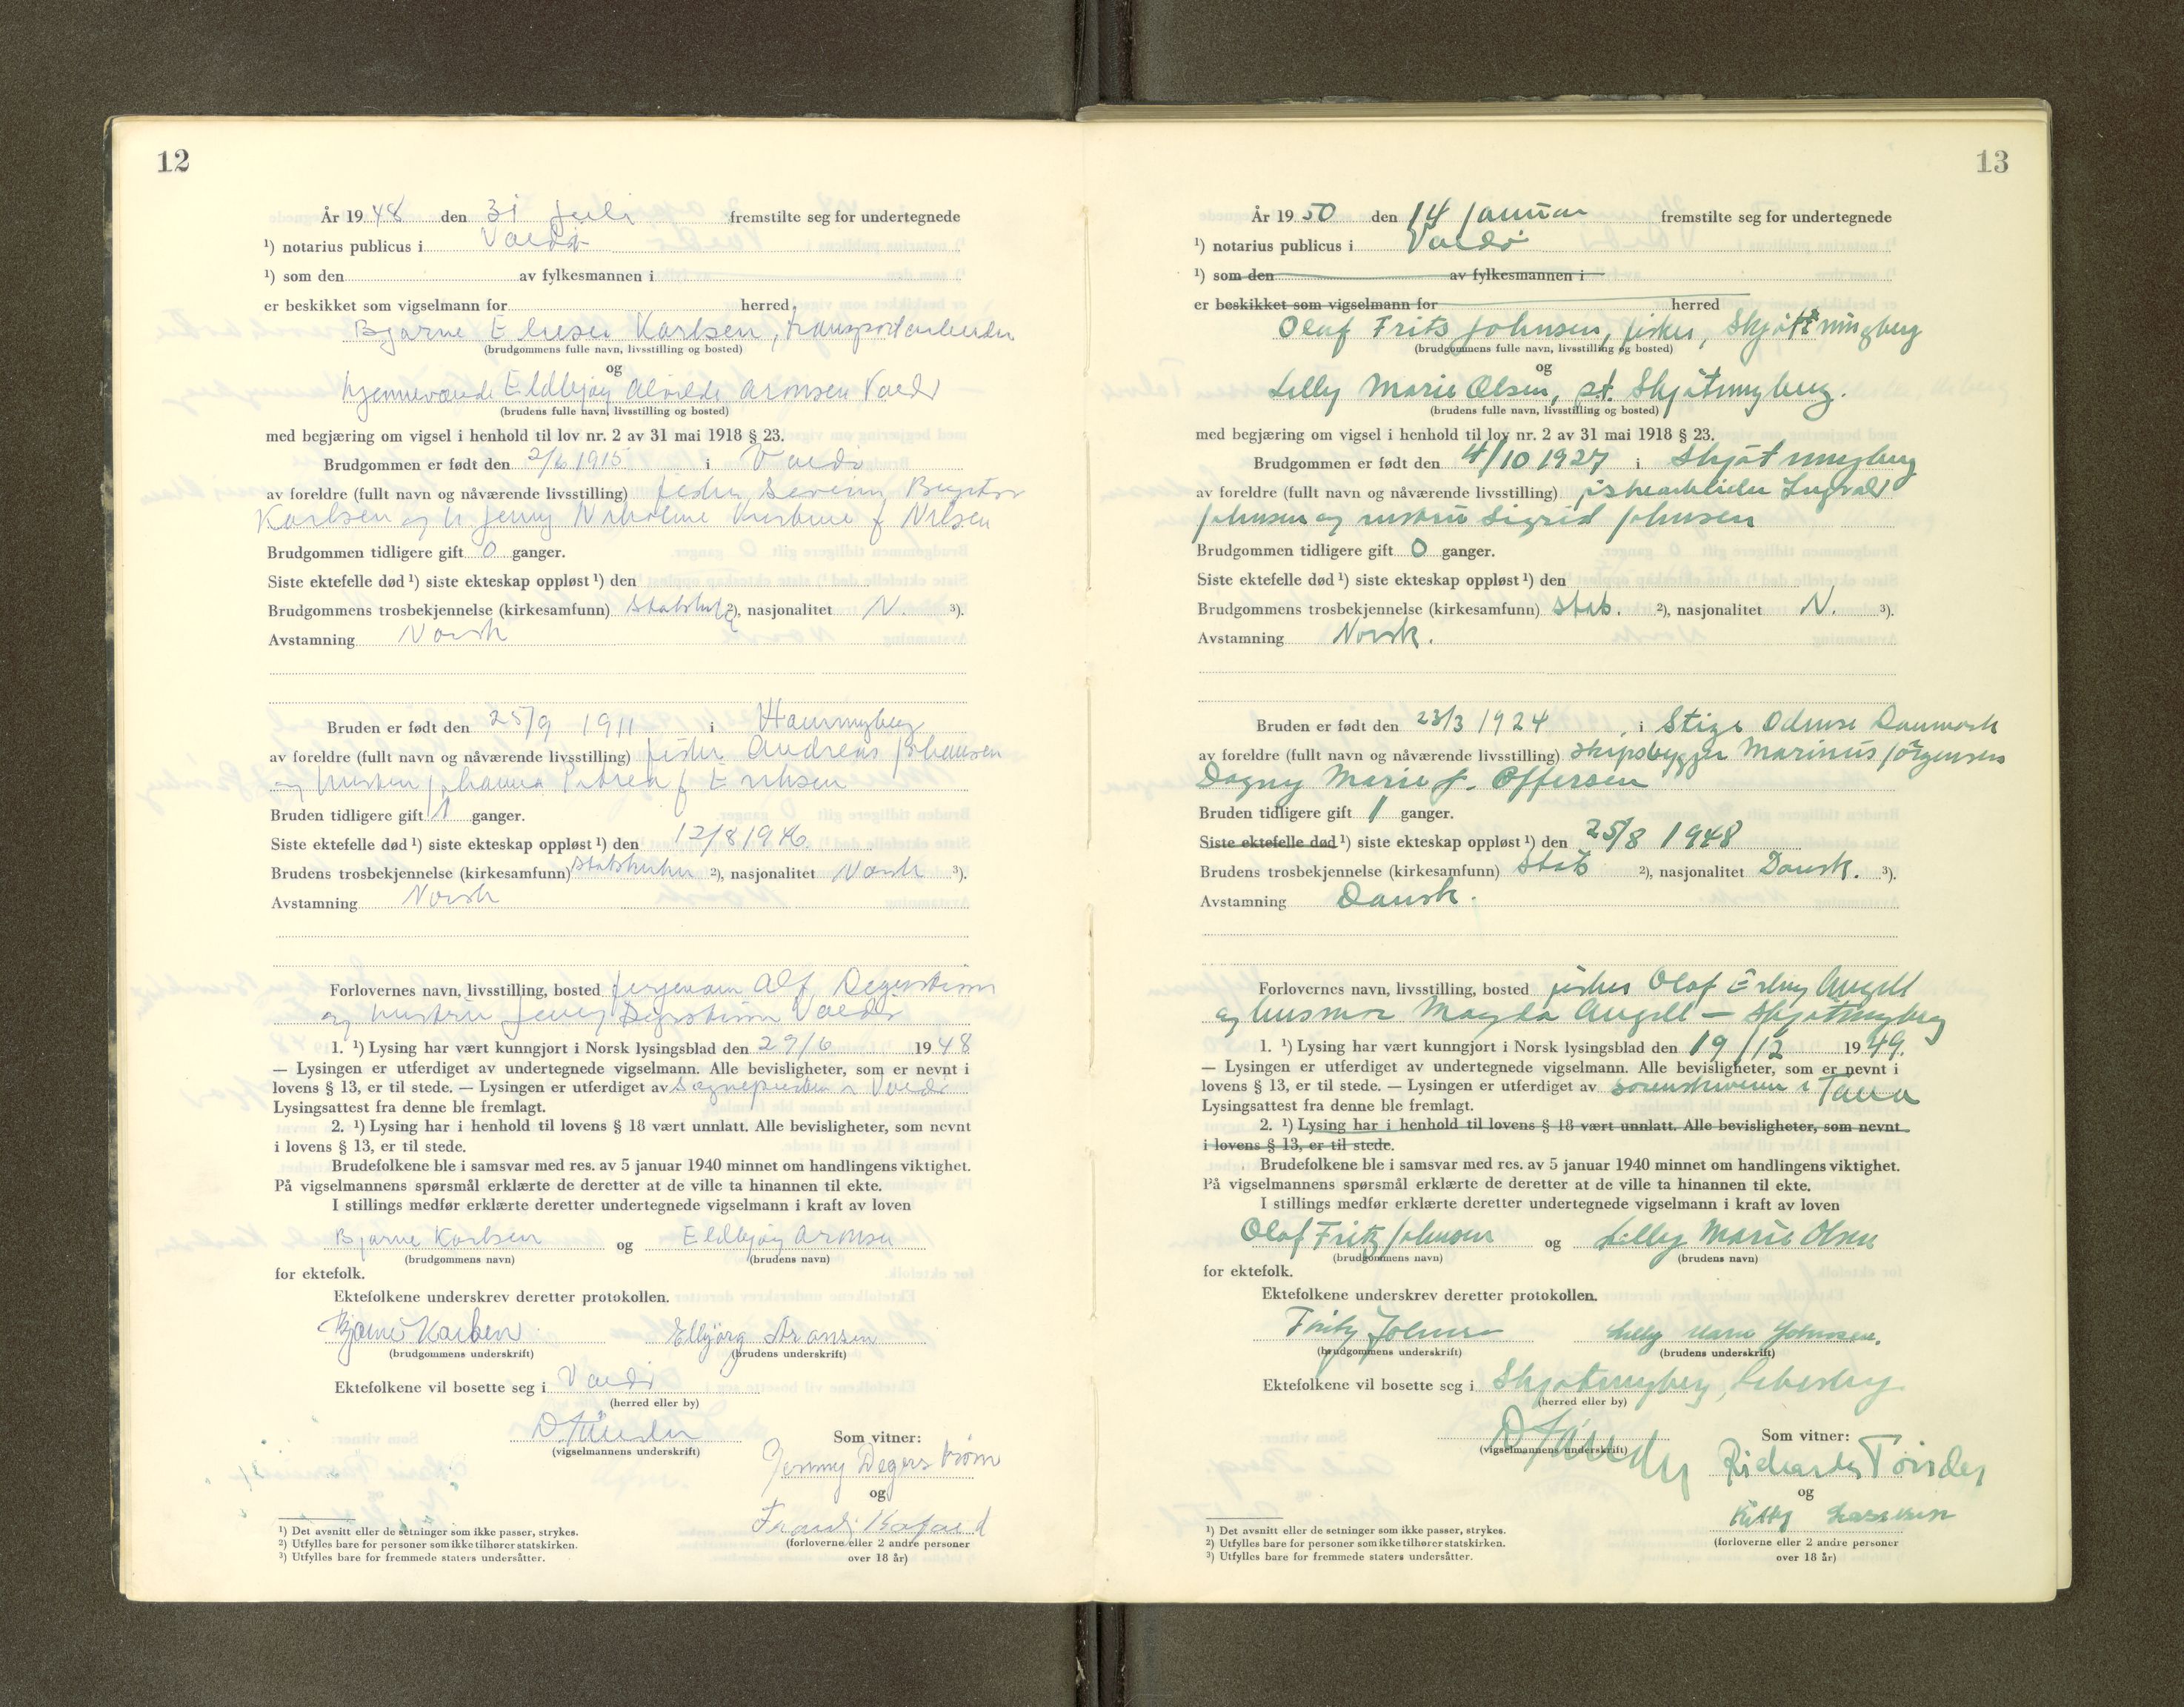 12
År 19 48 den 31 juli fremstilte seg for undertegnede
¹) notarius publicus i Vardø
¹) som den av fylkesmannen i
er beskikket som vigselmann for herred.
Bjarne Elieser Karlsen, transportarbeider
(brudgommens fulle navn, livsstilling og bosted)
og
hjemmeværende Eldbjøg Alvilde Aronsen Vardø
(brudens fulle navn, livsstilling og bosted)
med begjæring om vigsel i henhold til lov nr. 2 av 31 mai 1918 § 23.
Brudgommen er født den 2/6 1915 i Vardø
av foreldre (fullt navn og nåværende livsstilling) fisker Severin
Karlsen og h. Jenny Nikoline Kristine f Nilsen
Brudgommen tidligere gift 0 ganger.
Siste ektefelle død ¹) siste ekteskap oppløst ¹) den
Brudgommens trosbekjennelse (kirkesamfunn) ²), nasjonalitet N. ³).
Avstamning Norsk
Bruden er født den 25/9 1911 i Hamningberg
av foreldre (fullt navn og nåværende livsstilling) fisker Andreas Johansen
og hustru Johanna Petrea f Eriksen
Bruden tidligere gift 1 ganger.
Siste ektefelle død ¹) siste ekteskap oppløst ¹) den 12/8 1946
Brudens trosbekjennelse (kirkesamfunn) statskirken ²), nasjonalitet Norsk ³).
Avstamning Norsk
Forlovernes navn, livsstilling, bosted Alf Degerstrøm
og hustru Jenny Degerstrøm Vardø
1. ¹) Lysing har vært kunngjort i Norsk lysingsblad den 29/6 19 48
— Lysingen er utferdiget av undertegnede vigselmann. Alle bevisligheter, som er nevnt i
lovens § 13, er til stede. — Lysingen er utferdiget av sognepresten i Vardø
Lysingsattest fra denne ble fremlagt.
2. ¹) Lysing har i henhold til lovens § 18 vært unnlatt. Alle bevisligheter, som nevnt
i lovens § 13, er til stede.
Brudefolkene ble i samsvar med res. av 5 januar 1940 minnet om handlingens viktighet.
På vigselmannens spørsmål erklærte de deretter at de ville ta hinannen til ekte.
I stillings medfør erklærte deretter undertegnede vigselmann i kraft av loven
Bjarne Karlsen og Eldbjøg Aronsen
(brudgommens navn) (brudens navn)
for ektefolk.
Ektefolkene underskrev deretter protokollen.
Bjarne Karlsen Elbjørg Aronsen
(brudgommens underskrift) (brudens underskrift)
Ektefolkene vil bosette seg i Vardø
(herred eller by)
(vigselmannens underskrift) Som vitner:
Jenny Degerstrøm
og
(forloverne eller 2 andre personer
over 18 år)
¹) Det avsnitt eller de setninger som ikke passer, strykes.
²) Utfylles bare for personer som ikke tilhører statskirken.
³) Utfylles bare for fremmede staters undersåtter.
13
År 19 50 den 14 januar fremstilte seg for undertegnede
¹) notarius publicus i Vardø
¹) som den av fylkesmannen i
er beskikket som vigselmann for herred
Olaf Frits Johnsen, fisker, Skjøtningberg
(brudgommens fulle navn, livsstilling og bosted)
og
Lilly Marie Olsen, st. Skjøtningberg.
(brudens fulle navn, livsstilling og bosted)
med begjæring om vigsel i henhold til lov nr. 2 av 31 mai 1918 § 23.
Brudgommen er født den 4/10 1927 i Skjøtningberg
av foreldre (fullt navn og nåværende livsstilling) fiskearbeider Ingvald
Johnsen og hustru Sigrid Johnsen
Brudgommen tidligere gift 0 ganger.
Siste ektefelle død ¹) siste ekteskap oppløst ¹) den
Brudgommens trosbekjennelse (kirkesamfunn) Stats. ²), nasjonalitet N. ³).
Avstamning Norsk.
Bruden er født den 23/3 1924, i Stige Odense Danmark
av foreldre (fullt navn og nåværende livsstilling) skipsbygger Marinus Jørgensen
Dagny Marie f. Offersen
Bruden tidligere gift 1 ganger.
Siste ektefelle død ¹) siste ekteskap oppløst ¹) den 25/8 1948
Brudens trosbekjennelse (kirkesamfunn) Stats ²), nasjonalitet Dansk. ³).
Avstamning Dansk.
Forlovernes navn, livsstilling, bosted fisker Olaf Erling Angell
og husmor Magda Angell — Skjøtningberg
1. ¹) Lysing har vært kunngjort i Norsk lysingsblad den 19/12 19 49.
— Lysingen er utferdiget av undertegnede vigselmann. Alle bevisligheter, som er nevnt i
lovens § 13, er til stede. — Lysingen er utferdiget av sorenskriveren i Tana
Lysingsattest fra denne ble fremlagt.
2. ¹) Lysing har i henhold til lovens § 18 vært unnlatt. Alle bevisligheter, som nevnt
i lovens § 13, er til stede.
Brudefolkene ble i samsvar med res. av 5 januar 1940 minnet om handlingens viktighet.
På vigselmannens spørsmål erklærte de deretter at de ville ta hinannen til ekte.
I stillings medfør erklærte deretter undertegnede vigselmann i kraft av loven
Olaf Fritz Johnsen og Lilly Marie Olsen
(brudgommens navn) (brudens navn)
for ektefolk.
Ektefolkene underskrev deretter protokollen.
Fritz Johnsen Lilly Marie Johnsen.
(brudgommens underskrift) (brudens underskrift)
Ektefolkene vil bosette seg i Skjøtningberg, Lebesby
(herred eller by)
(vigselmannens underskrift) Som vitner:
Richardy Tønder
og
Kitty
(forloverne eller 2 andre personer
over 18 år)
¹) Det avsnitt eller de setninger som ikke passer, strykes.
²) Utfylles bare for personer som ikke tilhører statskirken.
³) Utfylles bare for fremmede staters undersåtter.